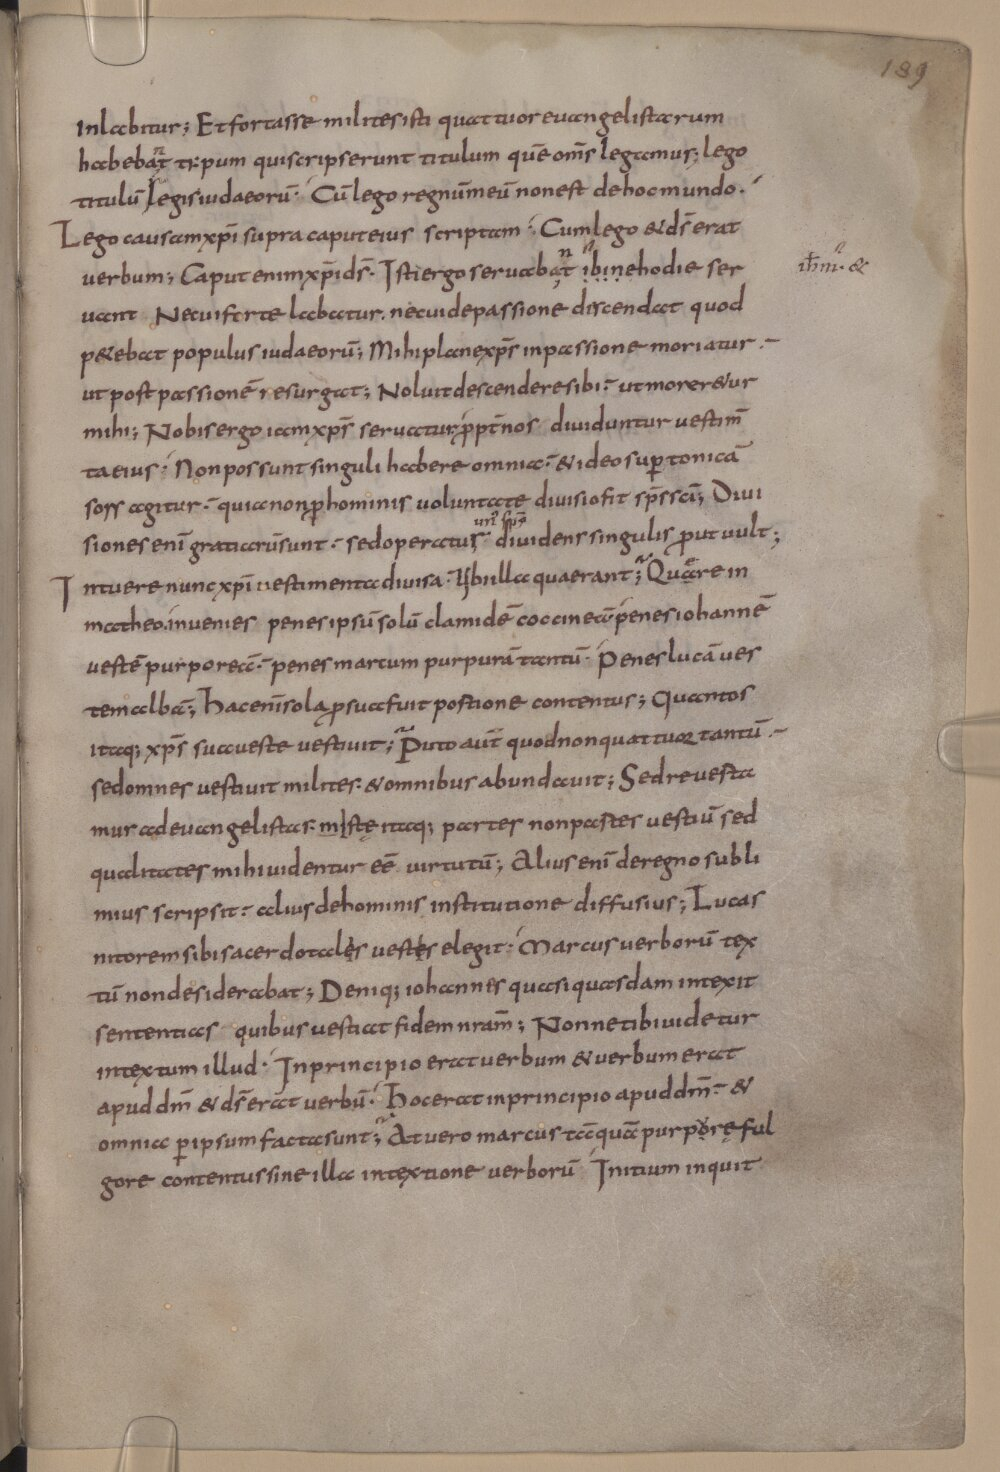 189
inlabitur; Et fortasse milites isti quattuor evangelistarum
habebant tipum qui scripserunt titulum quē om̄s legamus; lego
titulū legis iudaeorū· Cū lego regnū meū non est de hoc mundo·
Lego causam xp̄i supra caput eius scriptam· Cum lego & d̄s erat
verbum; Caput enim xp̄i d̄s· Isti ergo servabant ibi n̄ & hodie ser
ih̄m· &
vant Ne cui forte labatur. ne cui de passione discendat quod
p&ebat populus iudaeorū; Mihi plane xp̄s in passione moriatur·
ut post passionē resurgat; Noluit descendere sibi· ut morer&ur
mihi; Nobis ergo iam xp̄s servatur ꝓpt̄ nos dividuntur vestim̄
ta eius· Non possunt singuli habere omnia· & ideo sup̄ tonicā
sors agitur· quia non ꝓ hominis voluntate divisio fit sp̄s sc̄i; Divi
siones enī gratiarū sunt· sed operatus dividens singulis ꝓut vult;
un' sp̄s
Intuere nunc xp̄i vestimenta divisa· Ubi illa quaerant; Quaere in
matheo. invenies penes ipsū solū clamidē coccineā penes iohannē
vestē purporeā· penes marcum purpurā tantū· Penes lucā ves
tem albā; Hac enī sola ꝓ sua fuit postione contentus; Quantos
itaq; xp̄s sua veste vestivit; Puto aut̄ quod non quattuor tantū·
sed omnes vestivit milites· & omnibus abundavit; Sed reverta
mur ad evangelistas· miste itaq; partes non partes vestiū sed
qualitates mihi videntur eē virtutū; Alius enī de regno subli
mius scripsit· alius de hominis institutione diffusius; Lucas
nitorem sibi sacerdotalis vestis elegit· Marcus verborū tex
tū non desiderabat; Deniq; iohannes quasi quasdam intexit
sententias quibus vestiat fidem nr̄am; Nonne tibi videtur
intextum illud· In principio erat verbum & verbum erat
apud dm̄ & d̄s erat verbū· Hoc erat in principio apud dm̄· &
omnia ꝑ ipsum facta sunt; At vero marcus tāquā purpore ful
gore contentus sine illa intextione verborū Initium inquit